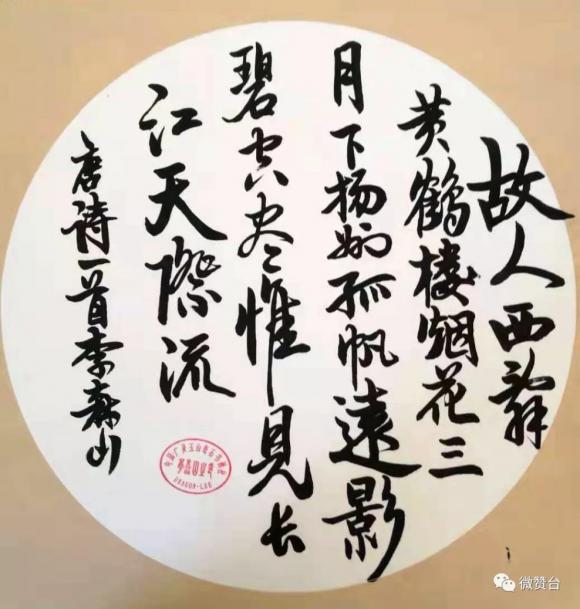 故人西辞
黄鹤楼烟花三
月下扬州孤帆遠影
碧空尽惟見长
江天際流
唐诗一首李山
DRAGON-LEE
微赞台